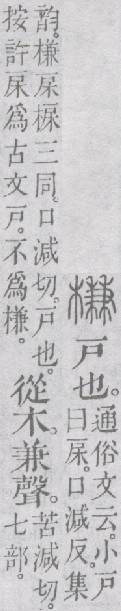 槏戶也。
通俗文云。小戶
曰㦿。口減反。集
韵。槏㦿三同。口減切。戶也。
按許㦿爲古文戶。不爲槏。
從木。兼聲。
苦減切。
七部。